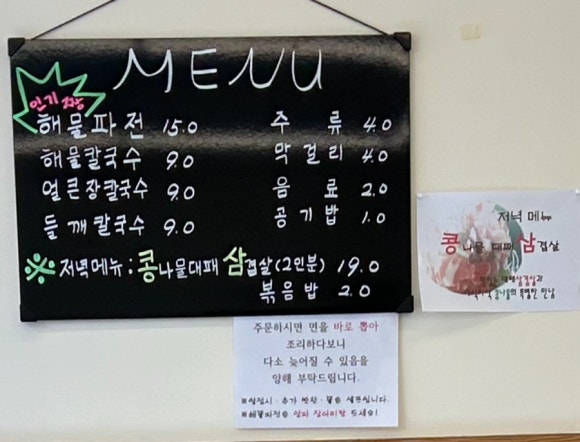 MENU
인기 짱
해물파전 15.0
해물칼국수 9.0
얼큰장칼국수 9.0
들깨칼국수 9.0
주류 4.0
막걸리 4.0
음료 2.0
공기밥 1.0
※ 저녁메뉴 : 콩나물대패 삼겹살(2인분) 19.0
볶음밥 2.0
저녁 메뉴
콩나물 대패 삼겹살
대패삼겹살과
콩나물의 특별한 만남
주문하시면 면을 바로 뽑아
조리하다보니
다소 늦어질 수 있음을
양해 부탁드립니다.